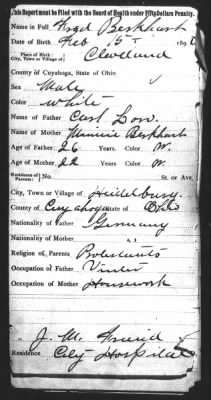 This Report must be Filed with the Board of Health under Fifty Dollars Penalty.
Name in Full
Date of Birth Feb 5th 189
Place of Birth Cleveland
City, Town or Village of
County of Cuyahoga, State of Ohio
Sex Male
Color White
Name of Father Carl
Name of Mother Minnie
Age of Father 26 Years. Color W.
Age of Mother 22 Years. Color W.
Residence of Parents: No. St. or Ave.
City, Town or Village of
County of Cuyahoga State of Ohio
Nationality of Father Germany
Nationality of Mother
Religion of Parents Protestants
Occupation of Father
Occupation of Mother Housework
J. M.
Residence City Hospital